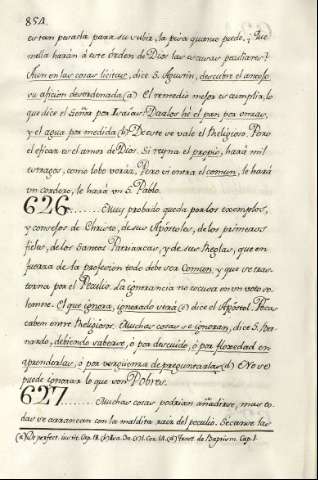 854.
es tan pesada para su vida, la pisa quanto puede. ¿Que
mella harán á este órden de Dios las escusas peculiares?
Aun en las cosas lícitas, dice S. Agustin, descubre el
su aficion desordenada. (a) El remedio mejor es cumplir lo
que dice el Señor por Isaías: Dadles hé el pan por onzas,
y el agua por medida (b) De este se vale el Religioso. Pero
el eficaz es el amor de Dios. Si reyna el propio, hará mil
estragos, como lobo voráz. Pero si entra el comun, le hará
un cordero, le hará un S. Pablo.
626....... Muy probado queda por los exemplos,
y consejos de Christo, de sus Apóstoles, de los primeros
fieles, de los Santos Patriarcas, y de sus Reglas, que en
fuerza de la profesión todo debe ser Comun, y que se tras-
torna por el Peculio. La ignorancia no escusa en un voto so-
lemne. El que ignora, ignorado será (c) dice el Apóstol. Poca
caben entre Religiosos. Muchas cosas se ignoran, dice S. Ber-
nardo, debiendo saberse, ó por descuido, ó por floxedad en
aprenderlas, ó por vergüenza de preguntarlas (d) No se
puede ignorar lo que son Pobres.
627....... Muchas cosas podrian añadirse, mas to-
das se arrancan con la maldita raíz del peculio. Secarse las
(a) De perfect. Cap. 18. (b) Isa. 30. (c) 1. Cor. 14. (d) Tract. de Baptism. Cap. 1.